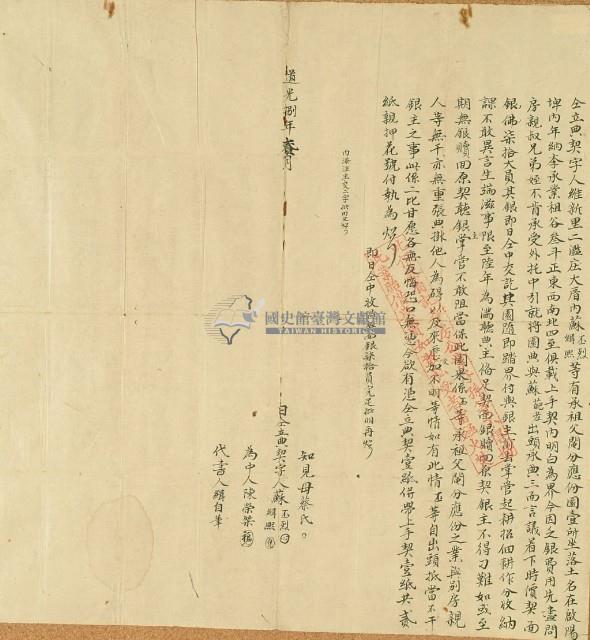 仝立典契字人維新里二濫庄大厝內蘇丕烈緝熙等有承祖父鬮分應份園壹所坐落土名在啟陽
埤內年納李承業祖谷叁斗正東西南北四至俱載上手契內明白為界今因乏銀費用先盡問
房親叔兄弟姪不肯承受外托中引就將園典與蘇 出頭承典三面言議着下時價契面
銀佛柒拾大員其銀即日仝中交訖其園隨即踏界付與銀主前去掌管起耕招佃耕作分收納
課不敢異言生端滋事限至陸年為滿聽典主備足契面銀贖回原契銀主不得刁難如或至
期無銀贖回原契聽銀主掌管不敢阻當保此園果係丕等承祖父鬮分應份之業與別房親
人等無干亦無重張典掛他人為碍以及來歷交加不明等情如有此情丕等自出頭抵當不干
銀主之事此係二比甘愿各無反悔恐口無憑今欲有憑仝立典契壹紙併帶上手契壹紙共貳
紙親押花號付執為炤
即日仝中收過契面銀柒拾員完足批明再炤
內添註主交二字批明又炤
道光捌年 月 日仝立典契字人蘇丕烈緝熙
知見母蔡氏
為中人陳榮桀
代書人緝自筆
國史館臺灣文獻館
TAIWAN HISTORICA